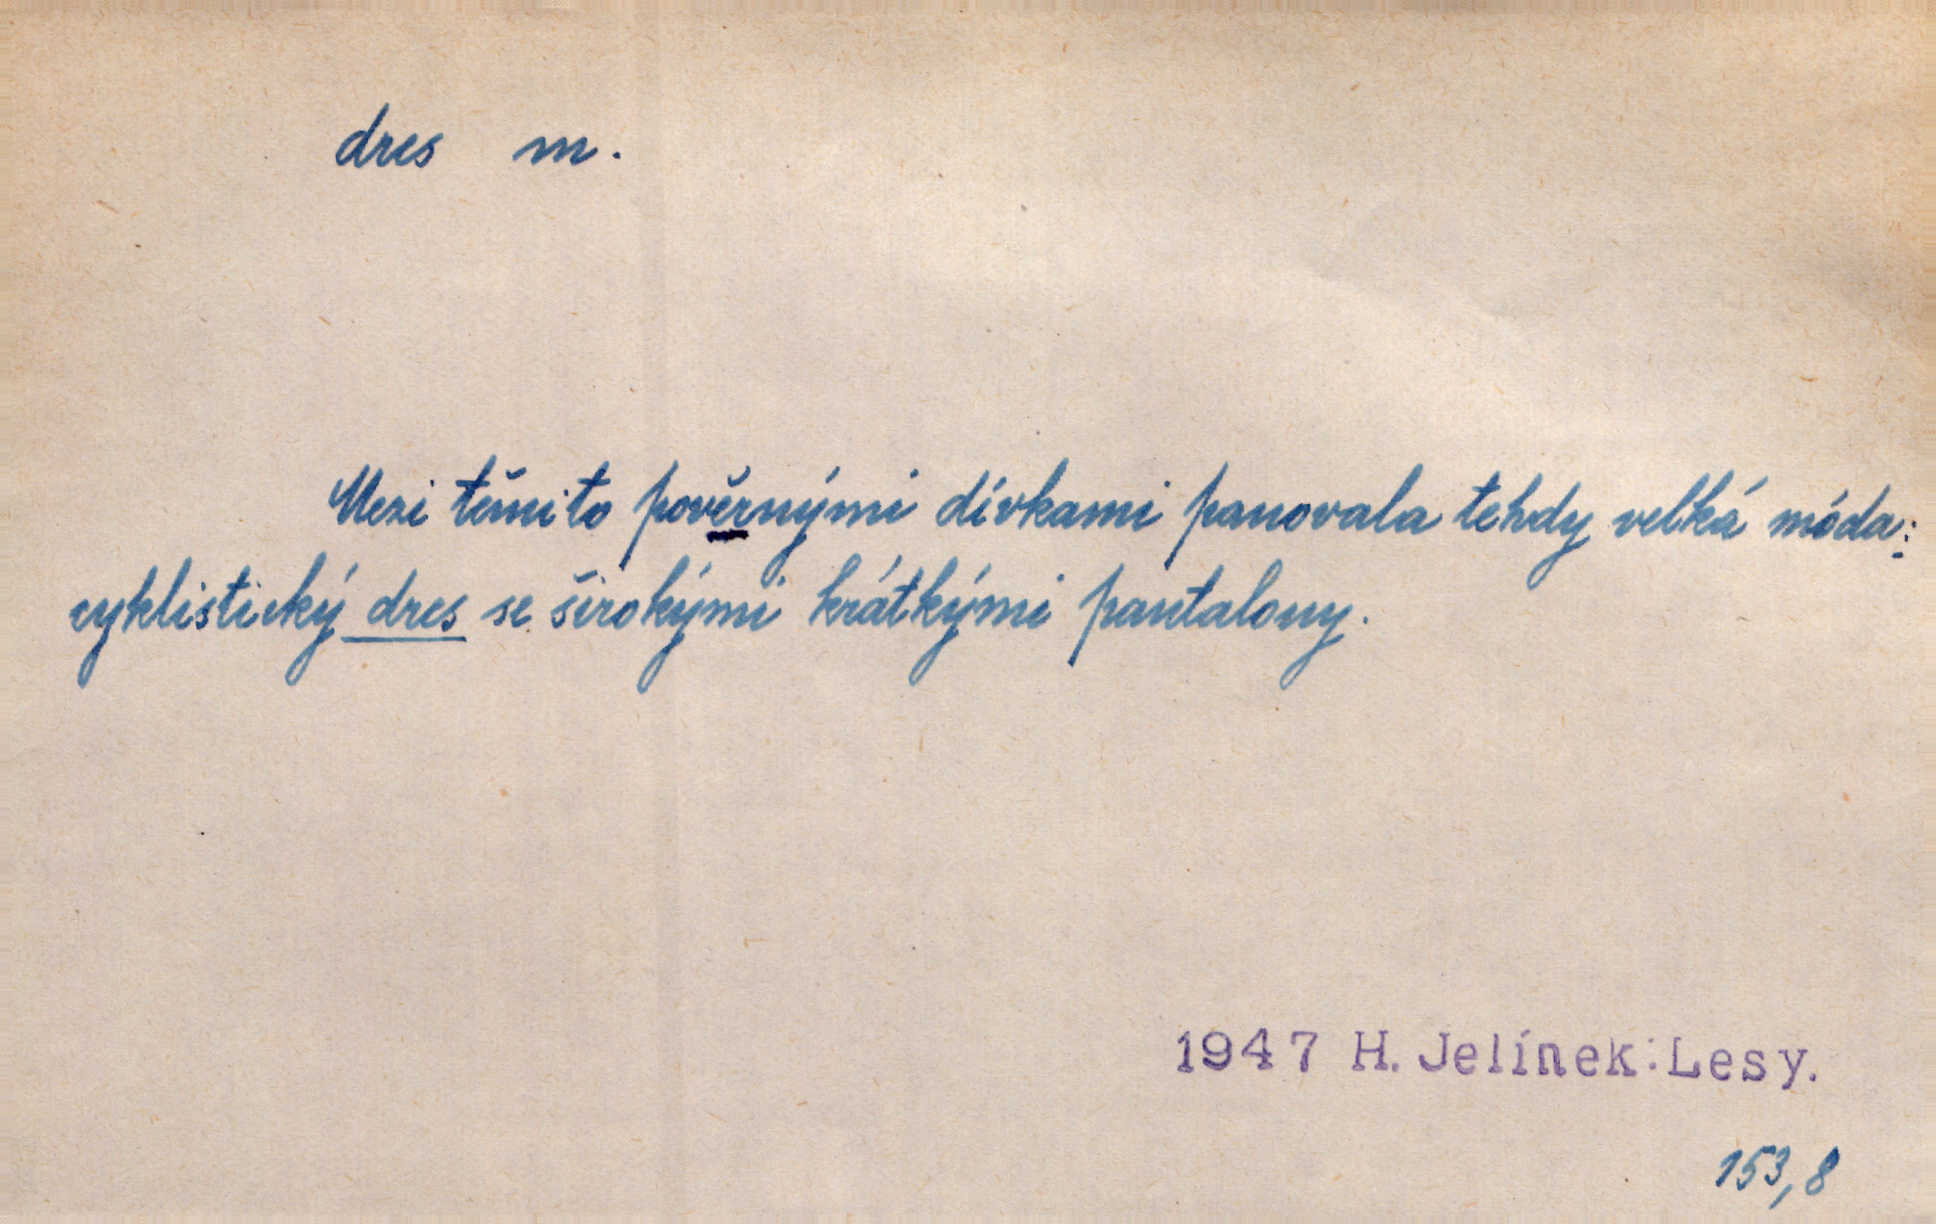 dres m.
Mezi těmito pověrnými dívkami panovala tehdy velká móda:
cyklistický dres se širokými krátkými pantalony.
1947 H. Jelínek: Lesy.
153,8